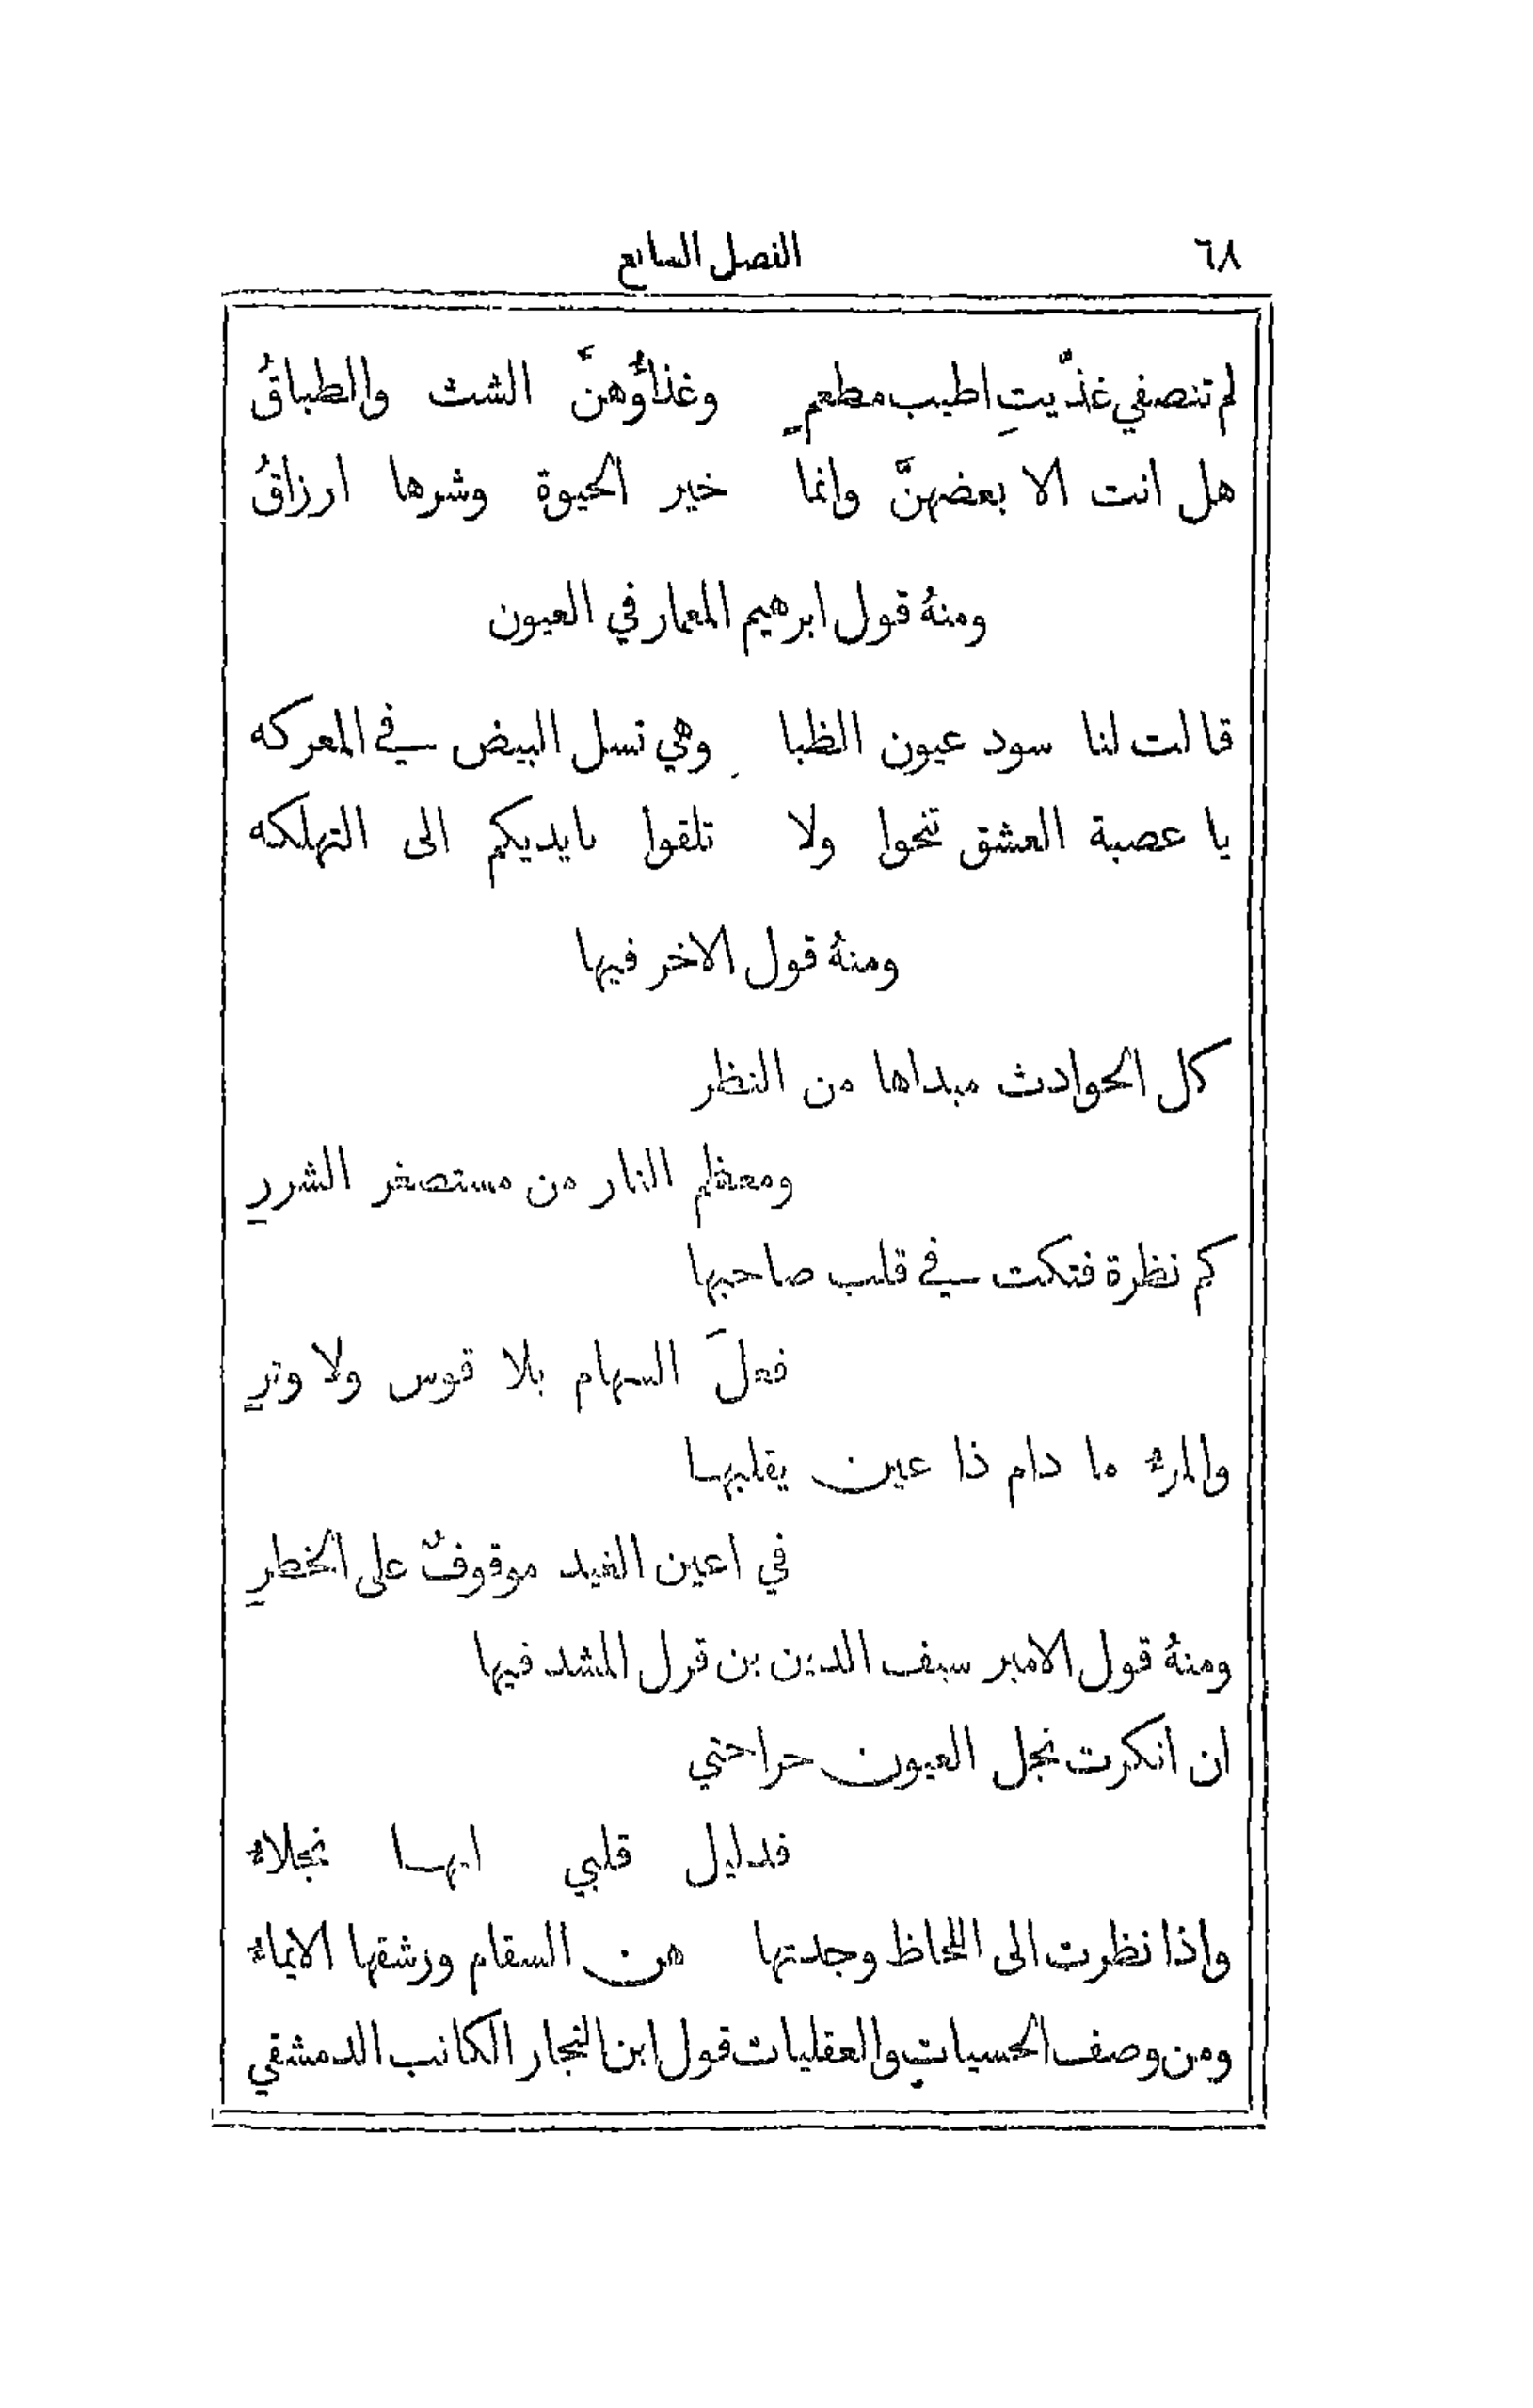 ٦٨ الفصل السابع
لم تنصفي غذّيتِ اطيب مطعمٍ وغذاؤُهنَّ الشث والطباقُ
هل انت الا بعضهنَّ وانما خير الحيوة وشرها ارزاقُ
ومنهُ قول ابرهيم المعمار في العيون
قالت لنا سود عيون الظبا وهي تسل البيض في المعركه
يا عصبة العشق تنحوا ولا تلقوا بايديكم الى التهلكه
ومنهُ قول الاخر فيها
كل الحوادث مبداها من النظر
ومعظم النار من مستصغر الشررِ
كم نظرة فتكت في قلب صاحبها
فعلَ السهام بلا قوس ولا وترِ
والمرء ما دام ذا عين يقلبها
في اعين الغيد موقوفٌ على الخطرِ
ومنهُ قول الامير سيف الدين بن قزل المشد فيها
ان انكرت نجل العيون جراحتي
فدليل قلبي انها نجلاء
واذا نظرت الى اللحاظ وجدتها هن السقام ورشقها الايماء
ومن وصف الحسيات والعقليات قول ابن النجار الكاتب الدمشقي